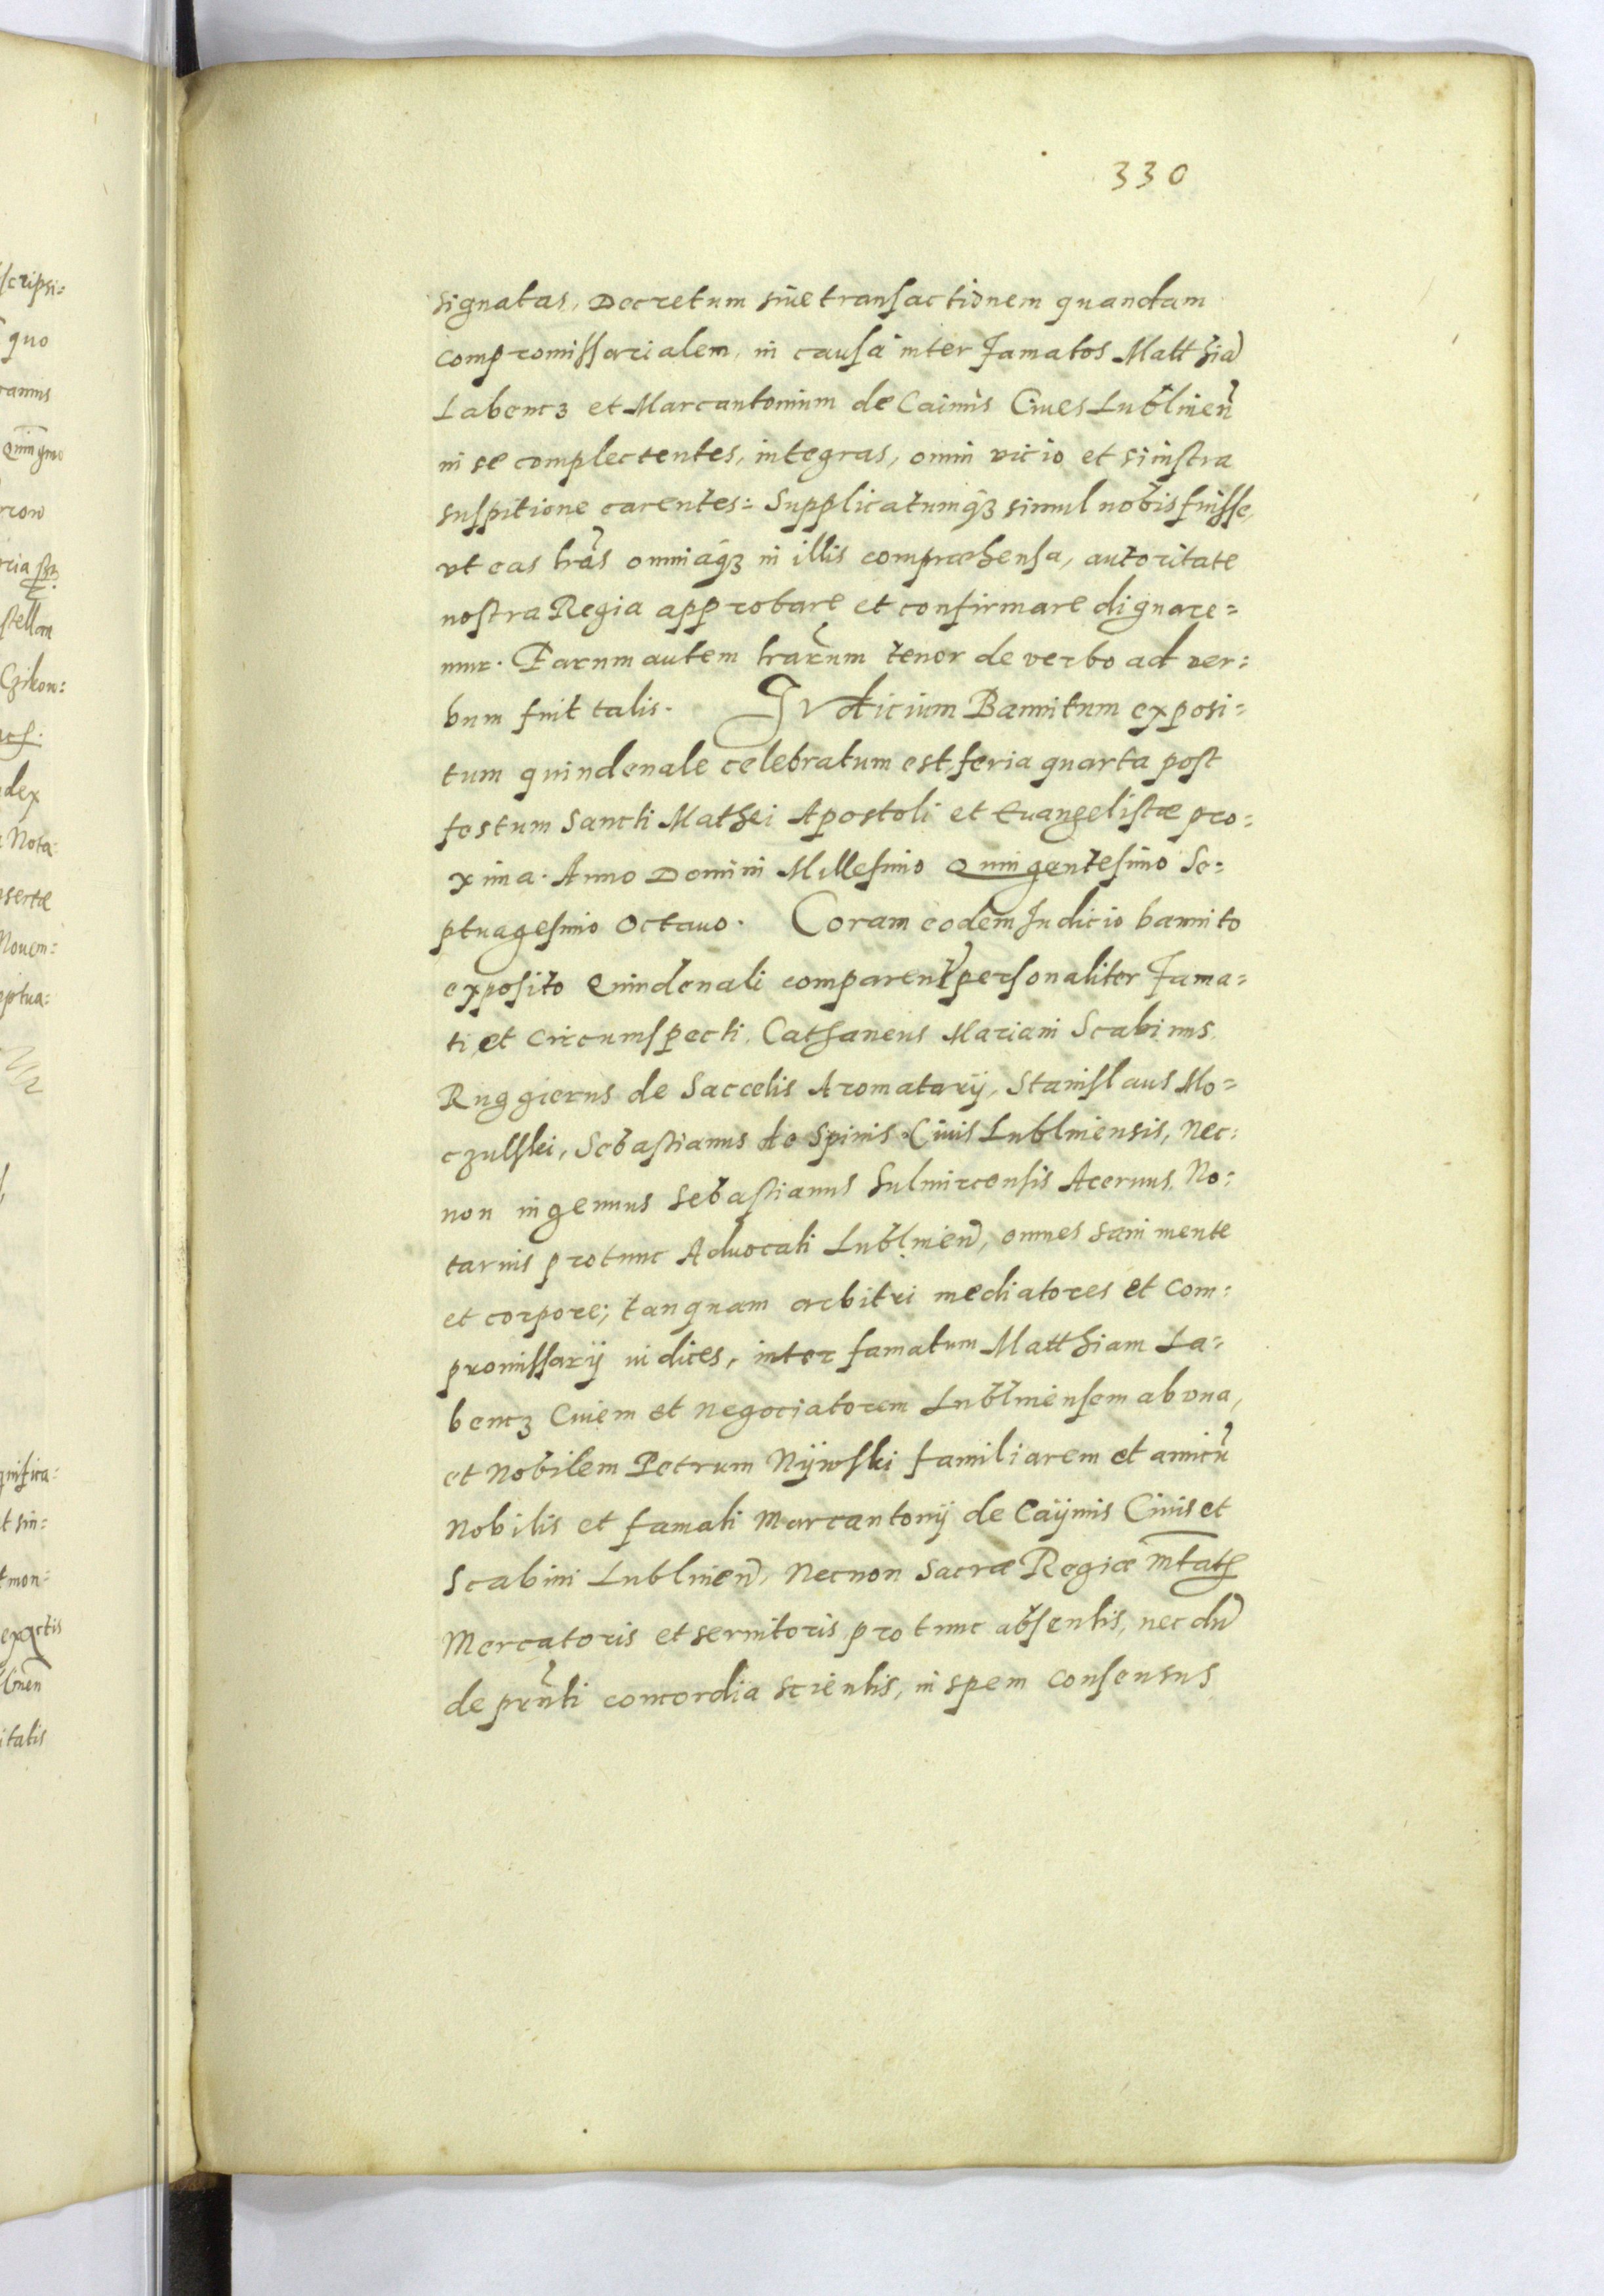 330
signatas, Decretum siue transactionem quandam
compromissarialem, in causa inter Famatos Matthiã
Labencz et Marcantonium de Caimis Ciues Lublineñ
in se complectentes, integras, omni vicio et sinistra
suspitione carentes: Supplicatumqȝ simul nobis fuisse,
vt eas lrãs omniaqȝ in illis compræhensa, autoritate
nostra Regia approbare et confirmare dignare=
mur. Earum autem lrarũm tenor de verbo ad ver:
bum fuit talis. IVdicium Bannitum exposi=
tum quindenale celebratum est, feria quarta post
festum Sancti Mathei Apostoli et Euangelistæ pro:
xima. Anno Domini Millesimo Quingentesimo Se=
ptuagesimo Octauo. Coram eodem Iudicio bannito
exposito Quindenali comparenť personaliter Fama=
ti et Circumspecti, Cathaneus Mariani Scabinus
Ruggierus de Saccelis Aromatarij, Stanislaus Mo=
czulski, Sebastianus de Spinis Ciuis Lublinensis, Nec:
non ingenuus Sebastianus Sulmircensis Acernus, No:
tarius protunc Aduocati Lublineñ, omnes sani mente
et corpore; tanquam arbitri mediatores et Com:
promissarij iudices, inter famatum Matthiam La=
bencz Ciuem et Negociatorem Lublinensem ab vna,
et Nobilem Petrum Nijwski familiarem et amicũ
Nobilis et famati Marcantonij de Caijmis Ciuis et
Scabini Lublineñ, Necnon Sacræ Regiæ Mtatꝭ
Mercatoris et seruitoris protunc absentis, nec dũ
de prñti concordia scientis, in spem consensus